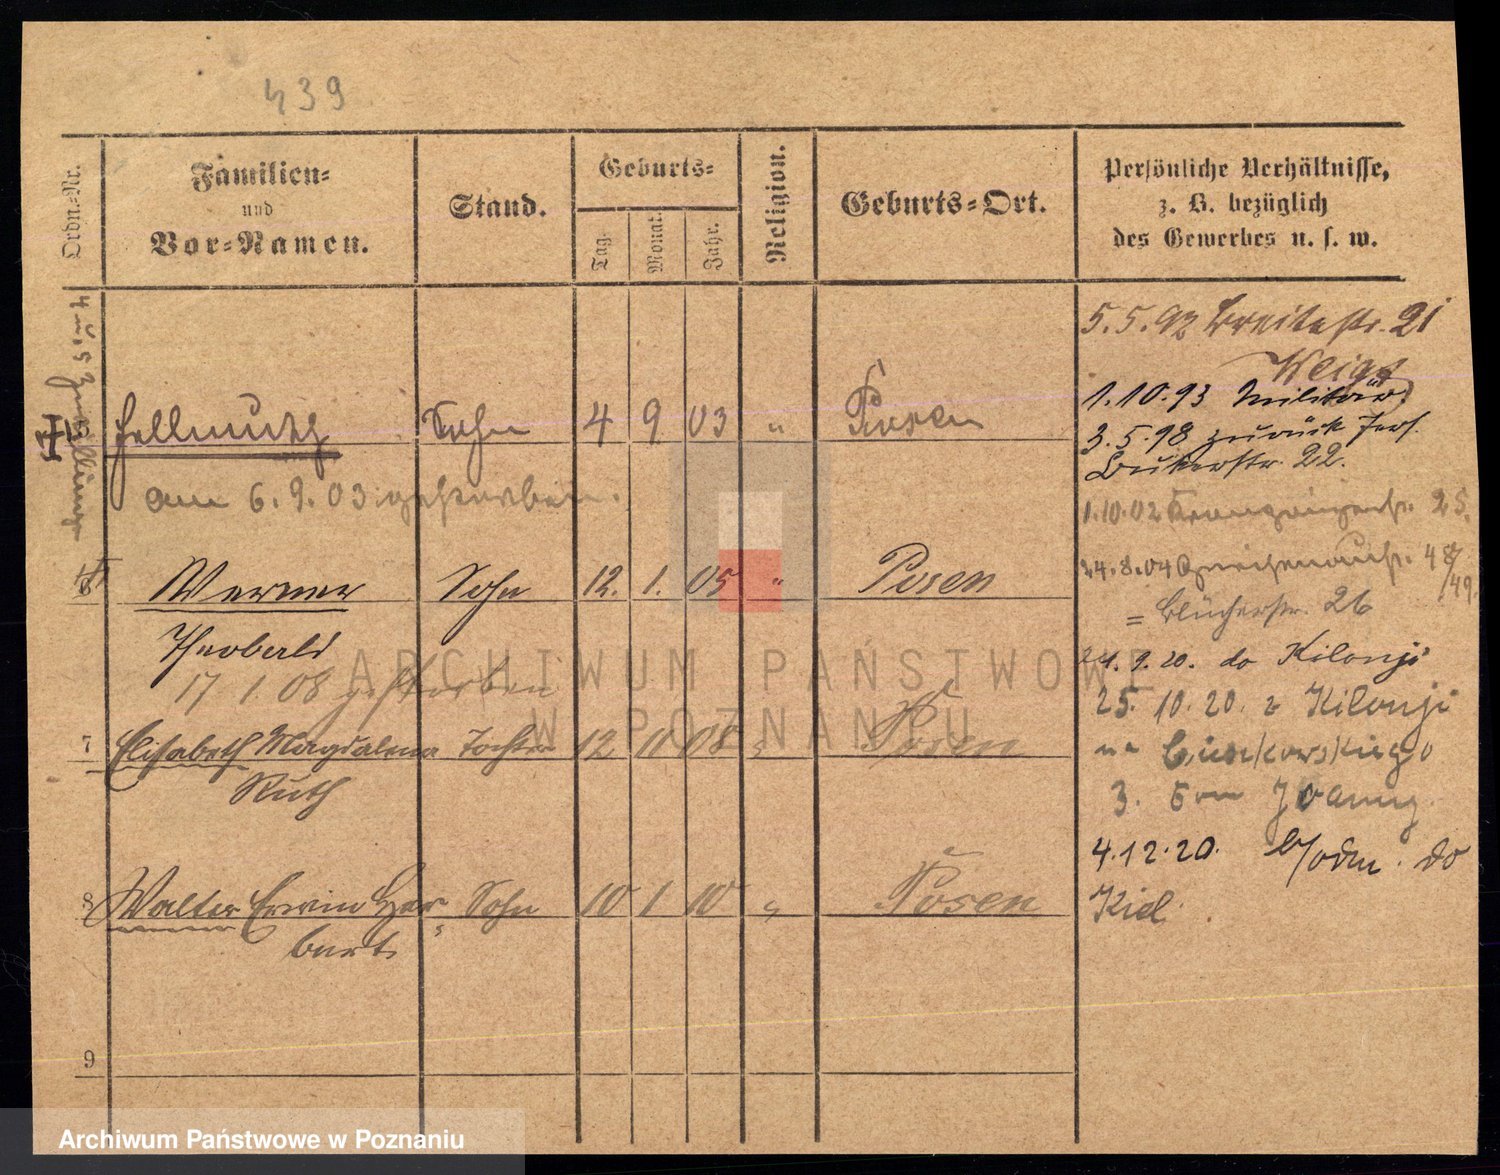 439
Ordn.-Nr.
Familien-
und
Vor-Namen.
Stand.
Geburts-
Tag.
Monat.
Jahr.
Religion.
Geburts-Ort.
Persönliche Verhältnisse,
z. B. bezüglich
des Gewerbes u. s. w.
4 u. 5 Zwillinge
5.5.92 Breitestr. 21
Weigt
1.10.93 Militär
Hellmuth Sohn 4 9 03 " Posen
3.5.98 zurück
22.
am 6.9.03 gestorben.
1.10.02 25.
24.8.04 Gneisenaustr. 48/49.
6 Werner Sohn 12. 1. 05 " Posen
= Blücherstr. 26
Theobald
24.9.20. do Kilonji
17 1.08 gestorben
25.10.20. z Kilonji
7 Elisabeth Magdalena Tochter 12 10 08 " Posen
na
Ruth
3.
4.12.20. do
8 Walter Erwin Her- Sohn 10 1 10 " Posen
Kiel
bert
9
ARCHIWUM PAŃSTWOWE
W POZNANIU
Archiwum Państwowe w Poznaniu